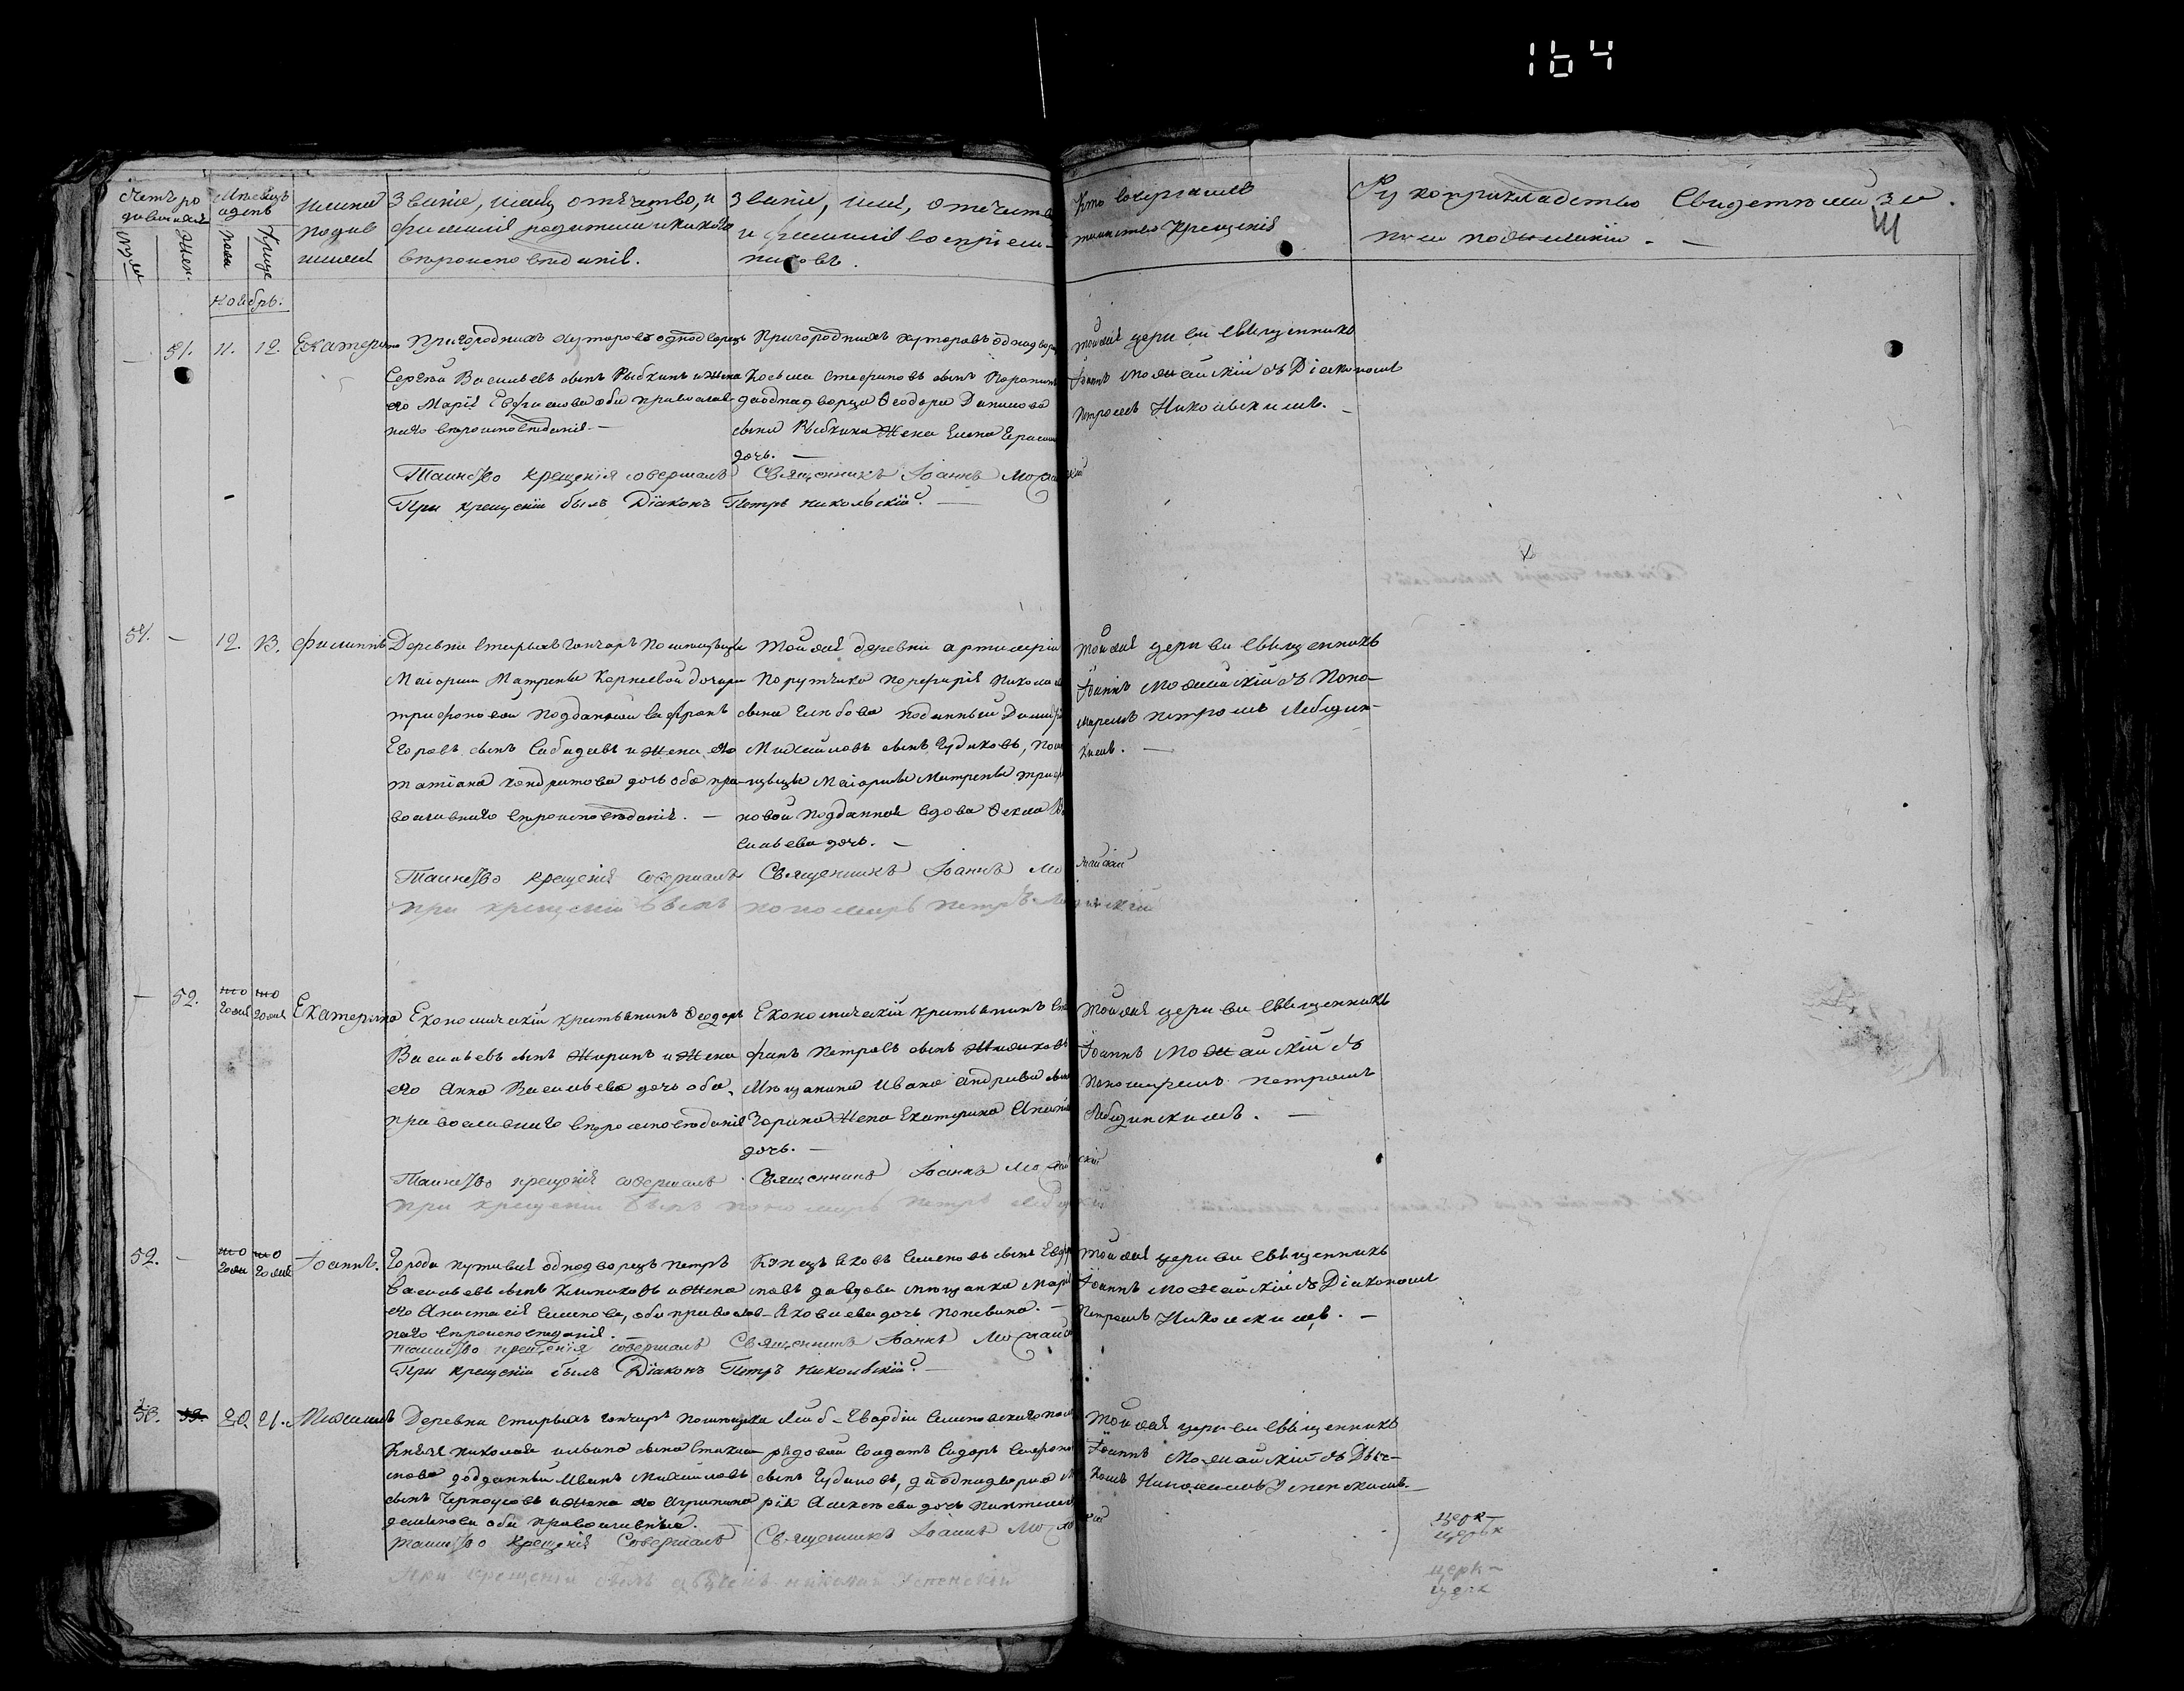 164
Счетъ ро
дившихся
Муж.
Жен.
Мѣсяцъ
и день
рожд
Креще
имена
родив
шихся
Званіе, имя, отчество, и
фамилія родителей и какого
вѣроисповѣданія.
Званіе, имя, отчество
и фамилія воспріем-
никовъ.
Кто совершалъ
таинство крещенія
Рукоприкладство свидѣтелей за
писи по желанію. —
Ноябрь.
— 51. 11. 12. Екатерина
Пригородныхъ хуторовъ однодворецъ
Сергѣй Васильевъ сынъ Рыбкинъ и жена
его Марія Евфимова оба православ
наго вѣроисповѣданія. —
Пригородныхъ хуторовъ однодвор
Косьма Стефановъ сынъ
да однодворца Ѳеодора Данилова
сына Рыбкина жена Елена Гераси
дочь. —
тойже церкви священникъ
Іоаннъ Можайскій съ Діакономъ
Петромъ Никольскимъ. —
Таинство крещенія совершалъ Священникъ Іоаннъ Можайскій
При крещеніи былъ Діаконъ Петръ Никольскій. —
51. — 12. 13. Филиппъ
Деревни Старыхъ Гончаръ помѣщицы
Маіорши Матрены Корнеевой дочери
Трифоновой подданный Сафронъ
Егоровъ сынъ и жена его
Татіана Кондратова дочь оба пра-
вославнаго вѣроисповѣданія. —
Тойже деревни артилеріи
Порутчика Порфирія Никола
сына Глѣбова подданный Димитр
Михайловъ сынъ Гудиковъ, пом
щицы Маіорши Матрены Триф
новой подданная вдова Ѳекла Ва
сильева дочь. —
тойже церкви священникъ
Іоаннъ Можайскій съ Поно-
маремъ Петромъ Лебедин-
скимъ. —
Таинство крещенія совершалъ Священникъ Іоаннъ Можайскій
При крещеніи былъ пономарь Петръ Лебединскій
— 52. тогоже тогоже Екатерина
Економическій крестьянинъ Ѳеодоръ
Васильевъ сынъ Жиринъ и жена
его Анна Васильева дочь оба
православнаго вѣроисповѣданія
Економическій крестьянинъ Сте
фанъ Петровъ сынъ
Мѣщанина Ивана Андреева сына
Зорина жена Екатерина
дочь. —
тойже церкви священникъ
Іоаннъ Можайскій съ
Пономаремъ Петромъ
Лебединскимъ. —
Таинство крещенія совершалъ Священникъ Іоаннъ Можайскій
При крещеніи былъ пономарь Петръ Лебединскій
52. — тогоже тогоже Іоаннъ.
Города Путивля однодворецъ Петръ
Васильевъ сынъ и жена
его Анастасія Семенова, оба православ-
наго вѣроисповѣданія. —
Купецъ Яковъ Семеновъ сынъ
да вдова мѣщанка Марія
Яковлева дочь Попевина. —
тойже церкви священникъ
Іоаннъ Можайскій съ Діакономъ
Петромъ Никольскимъ. —
таинство крещенія совершалъ Священникъ Іоаннъ Можайскій
При крещеніи былъ Діаконъ Петръ Никольскій. —
53. 20. 21. Михаилъ
Деревни Старыхъ Гончаръ помѣщика
Князя Николая сына
подданный Иванъ Михайловъ
сынъ Черноусовъ и жена его Агрипина
оба православныя.
Лейб-Гвардіи Семеновскаго пол
рядовой солдатъ Сидоръ
сынъ Гудиковъ, да однодворка Ма
рія Алексѣева дочь
тойже церкви священникъ
Іоаннъ Можайскій съ Дьяч-
комъ Николаемъ Успенскимъ. —
таинство крещенія совершалъ Священникъ Іоаннъ Можайскій
При крещеніи былъ дьячекъ Николай Успенскій
церк-
церьк
церк-
церк